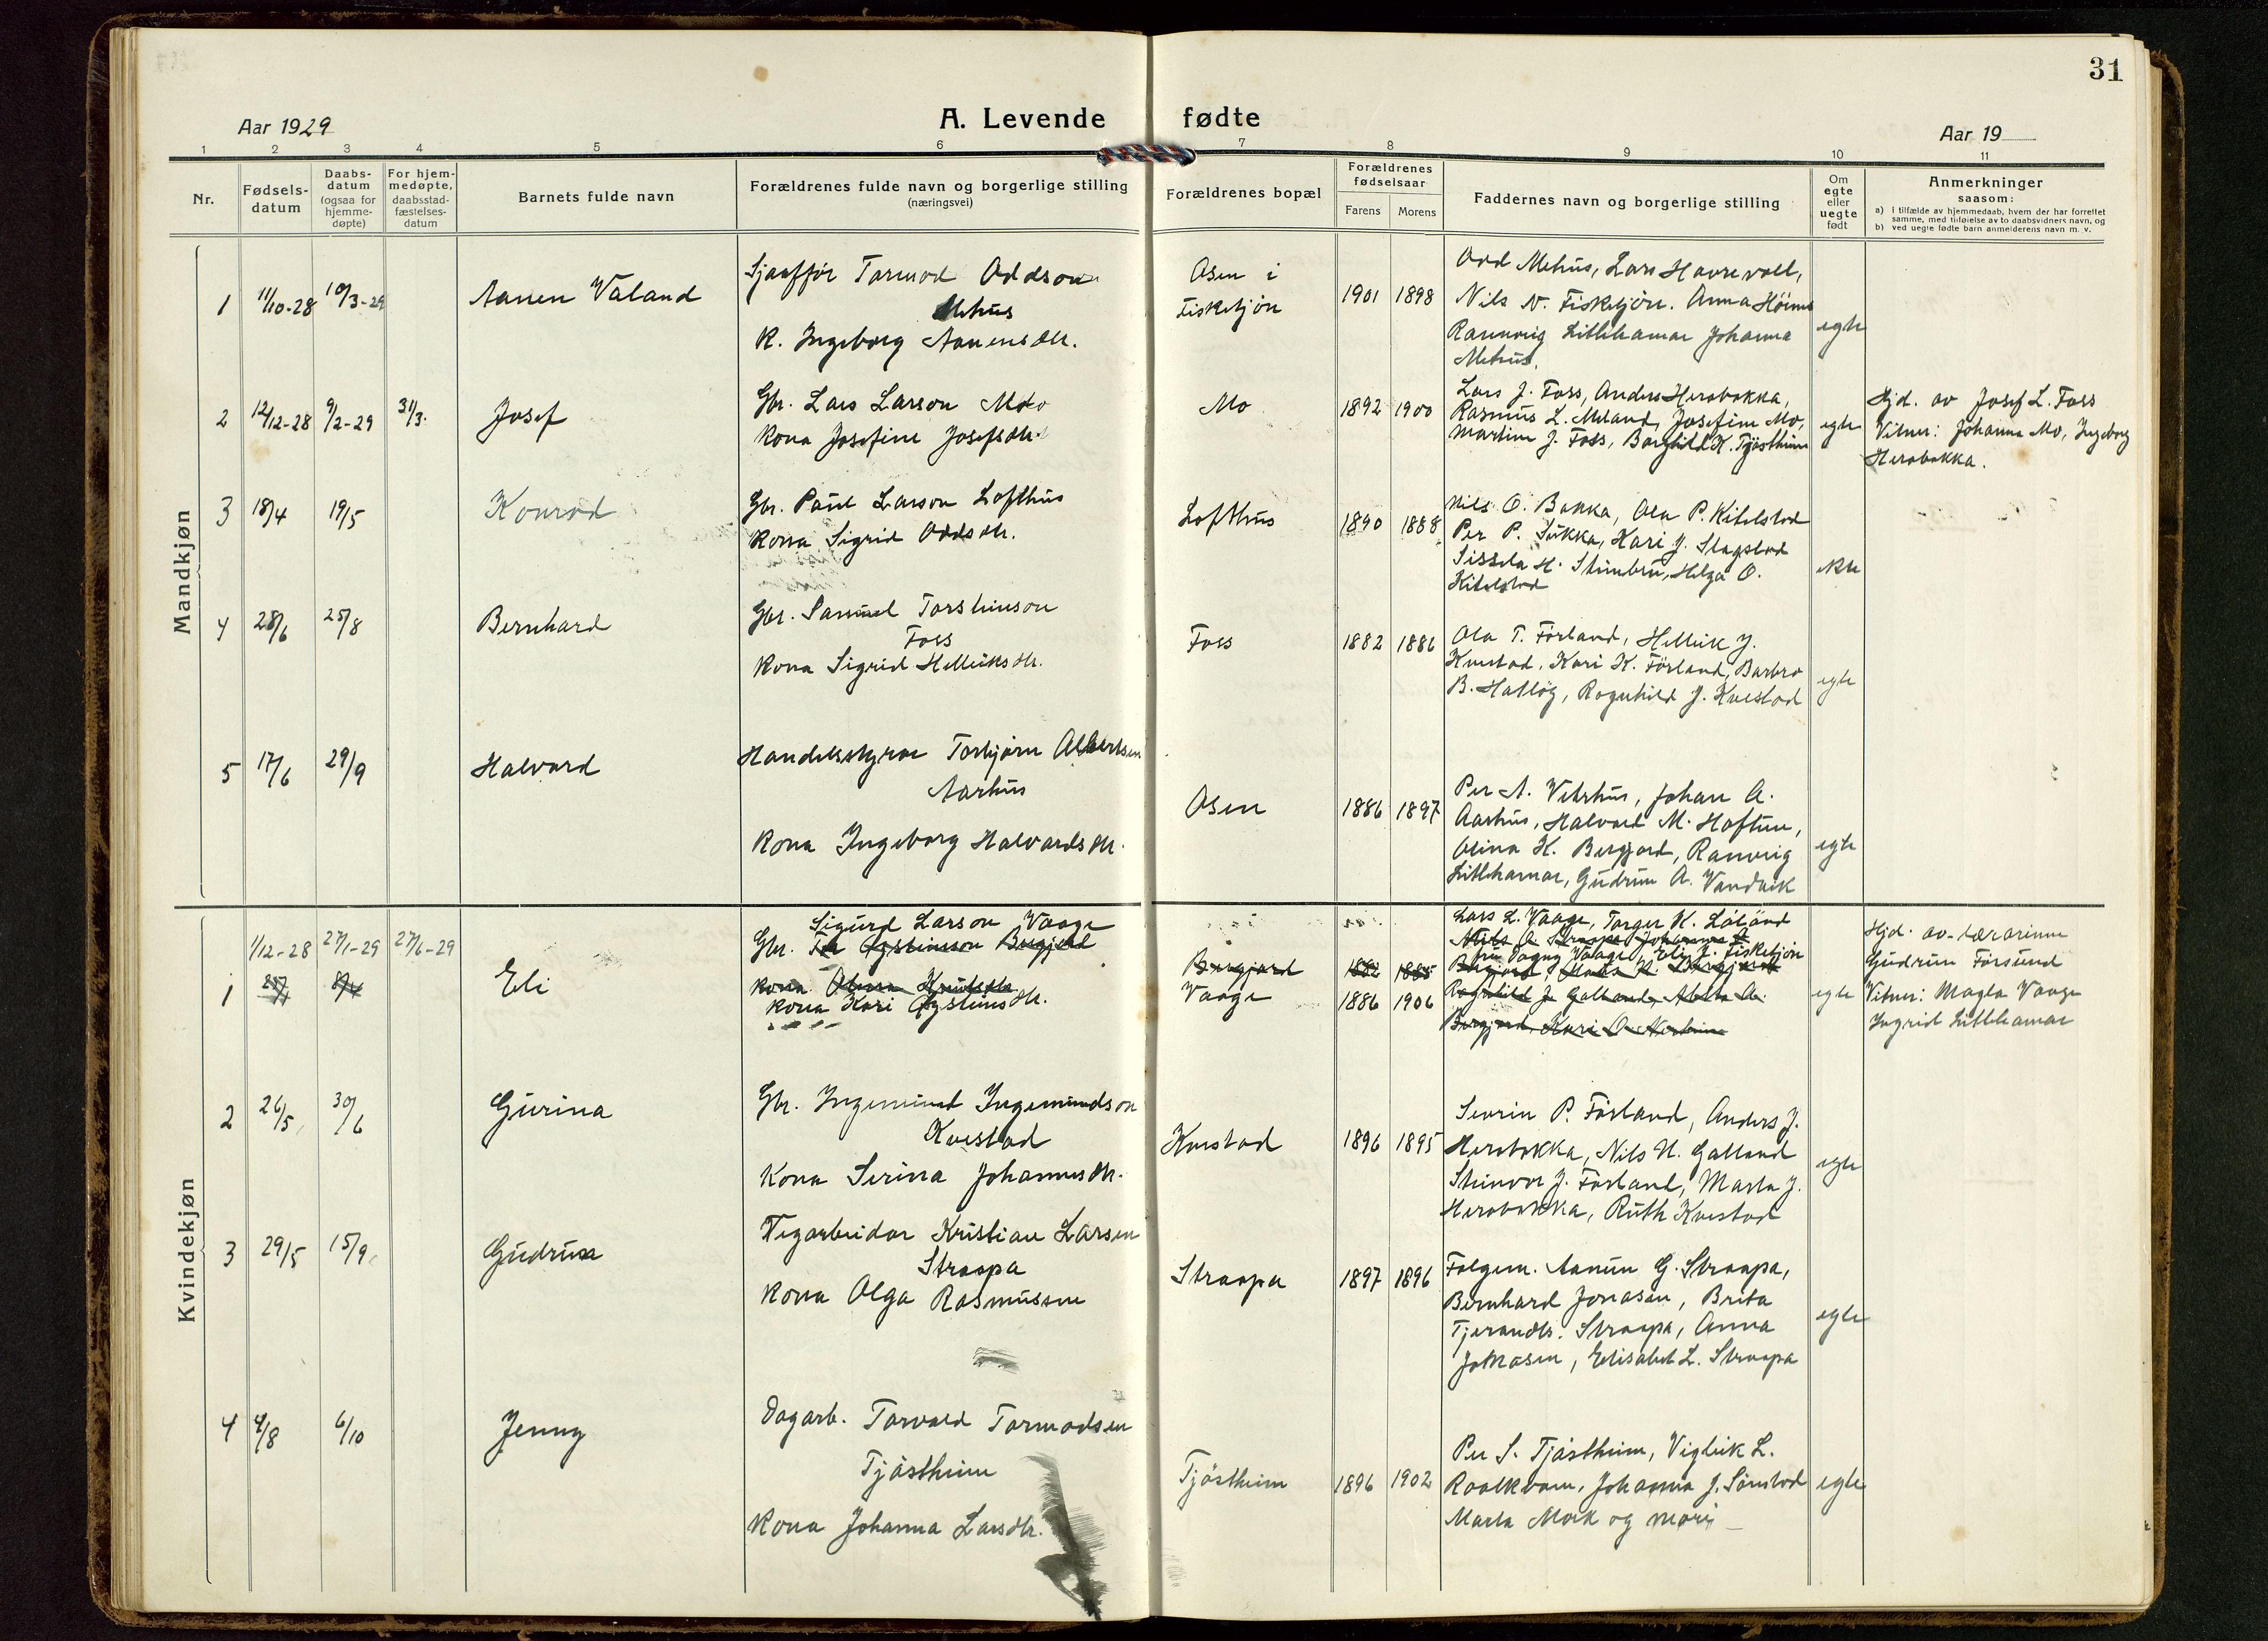 31
Aar 1929
A. Levende fødte
Aar 19
1 2 3 4 5 6 7 8 9 10 11
Nr.
Fødsels-
datum
Daabs-
datum
(ogsaa for
hjemme-
døpte)
For hjem-
medøpte,
daabsstad-
fæstelses-
datum
Barnets fulde navn
Forældrenes fulde navn og borgerlige stilling
(næringsvei)
Forældrenes bopæl
Forældrenes
fødselsaar
Farens Morens
Faddernes navn og borgerlige stilling
Om
egte
eller
uegte
født
Anmerkninger
saasom:
a) i tilfælde av hjemmedaab, hvem der har forrettet
samme, med tilføielse av to daabsvidners navn, og
b) ved uegte fødte barn anmelderens navn m. v.
Mandkjøn
1 11/10-28 10/3-29
Aanen Våland
Sjaafför Tormod Oddson
Mehus
K. Ingeborg Aanensdtr.
Osen i
Fisketjön
1901 1898
Odd Mehus, Lars Havrevoll,
Nils N. Fisketjön. Anna Höime
Rannveig Litlehamar Johanna
Mehus.
egte
2 12/12-28 9/2-29 31/3.
Josef
Gbr. Lars Larson Mo
Kona Josefine Josefsdtr.
Mo
1892 1900
Lars J. Foss, Anders Herabakka,
Rasmus L. Meland, Josefine Mo,
Martine J. Foss, Borghild K. Tjöstheim
egte
Hjd. av Josef L. Foss
Vitner: Johanna Mo, Ingeborg
Herabakka.
3 18/4 19/5
Konrad
Gbr. Paul Larson Lofthus
Kona Sigrid Oddsdtr.
Lofthus
1890 1888
Nils O. Bakka, Ola P. Kitelstad
Per P. Sukka, Kari J. Slagstad
Sissela H. Steinbru, Helga O.
Kitelstad
ekte
4 28/6 25/8
Bernhard
Gbr. Samuel Torsteinson
Foss
Kona Sigrid Helleiksdtr.
Foss
1882 1886
Ola T. Förland, Helleik J.
Kvestad, Kari K. Förland, Barbro
B. Hatlöy, Ragnhild J. Kvestad
egte
5 17/6 29/9
Halvard
Handelsstyrar Torbjörn Albertsen
Aarhus
Kona Ingeborg Halvardsdtr.
Osen
1886 1897
Per A. Vetrhus, Johan A.
Aarhus, Halvard M. Haftun,
Olina K. Bergjord, Ranveig
Litlehamar, Gudrun A. Vandvik
egte
Kvindekjøn
1 1/12-28 27/1-29 27/6-29
Eli
Sigurd Larson Vaage
Gbr. Bergjord
Kona Olina Knutsdtr.
Kona Kari Öysteinsdtr.
Bergjord
Vaage
1882 1885
1886 1906
Lars L. Vaage, Torger K. Løland
fru Dagny Vaage, Eli J. Fisketjön
Ragnhild J. Galtand,
Bergjord, Kari O.
egte
Hjd. av lærarinne
Gudrun Försund
Vitner: Magla Vaage
Ingrid Litlehamar
2 26/5 30/6
Gurina
Gbr. Ingemund Ingemundson
Kvestad
Kona Serina Johannesdtr.
Kvestad
1896 1895
Sevrin P. Förland, Anders J.
Herabakka, Nils N. Galtand
Steinvor J. Förland, Marta J.
Herabakka, Ruth Kvestad
egte
3 29/5 15/9
Gudrun
Vegarbeidar Kristian Larsen
Straapa
Kona Olga Rasmussen
Straapa
1897 1896
Folgem. Aanun G. Straapa,
Bernhard Jonasen, Brita
Tjerandtr. Straapa, Anna
Jonasen, Elisabet L. Straapa
egte
4 4/8 6/10
Jenny
Dagarb. Torvald Tormodsen
Tjöstheim
Kona Johanna Larsdtr.
Tjöstheim
1896 1902
Per S. Tjöstheim, Vigleik L.
Raalkvam, Johanna J. Sörestad
Marta Moik og mori
egte